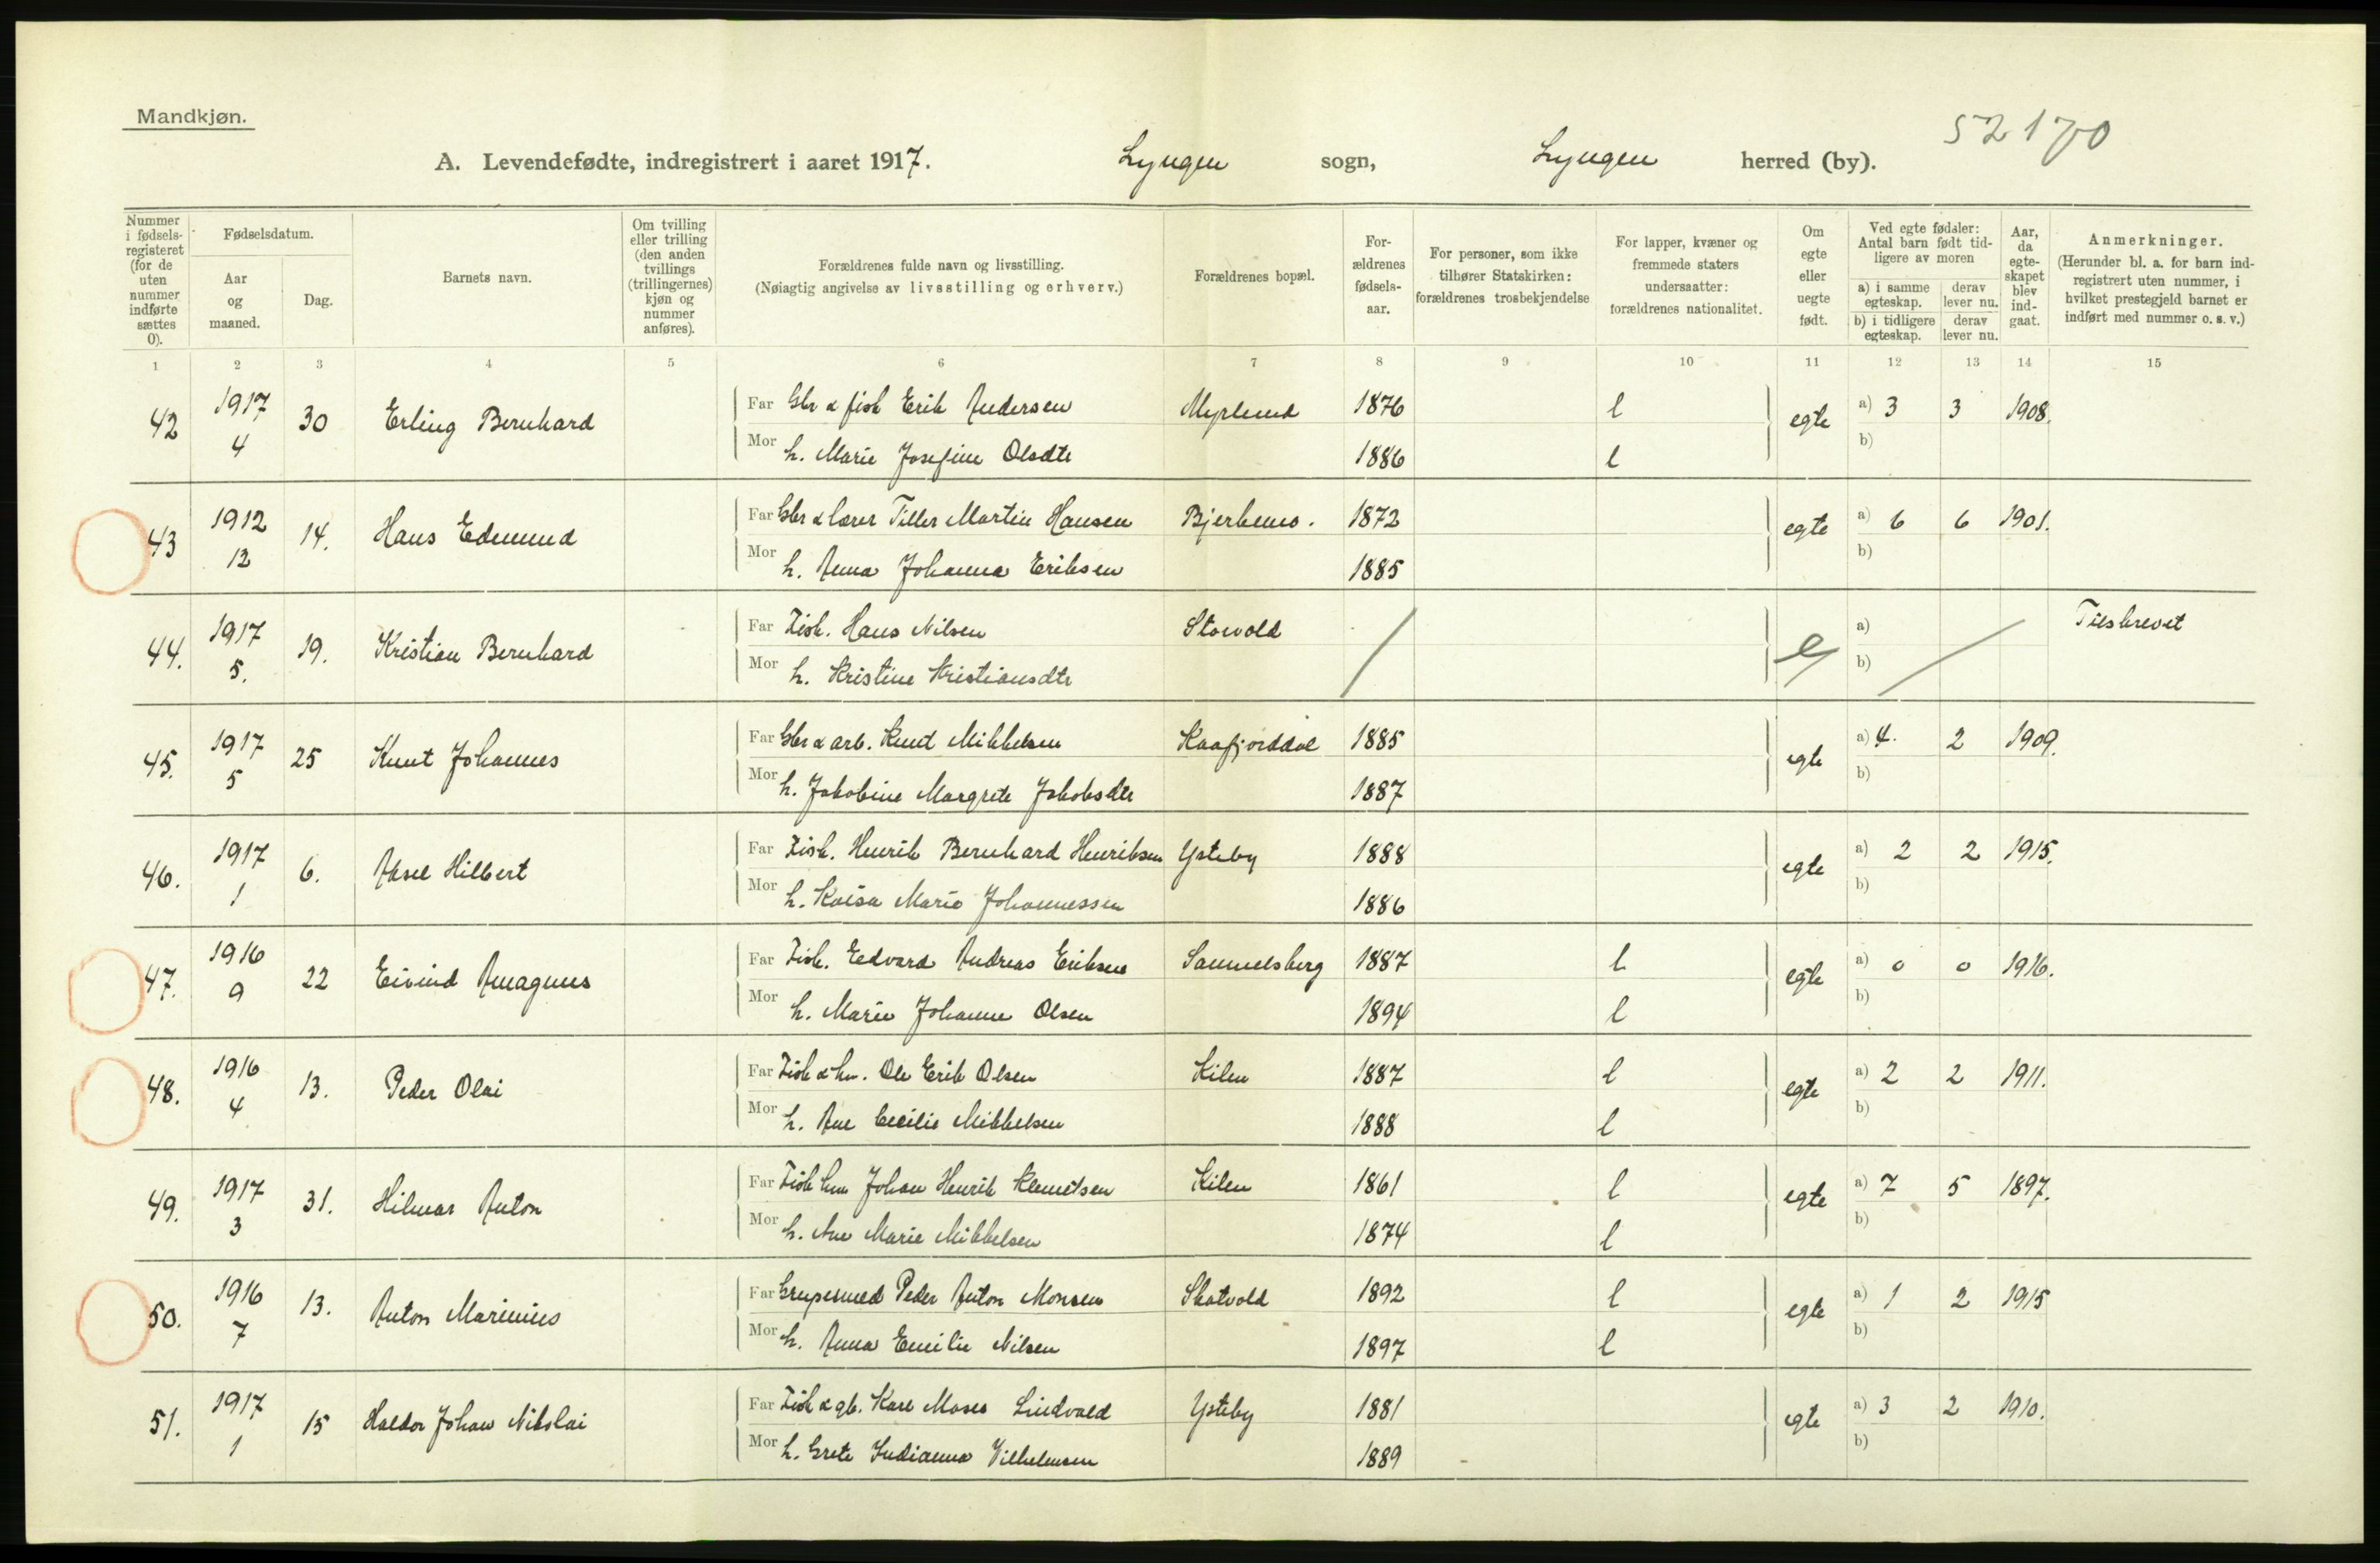 Mandkjøn.
52170
A. Levendefødte, indregistrert i aaret 1917. Lyngen sogn, Lyngen herred (by).
Nummer i fødsels-registeret (for de uten nummer indførte sættes 0).
Fødselsdatum.
Aar og maaned.
Dag.
Barnets navn.
Om tvilling eller trilling (den anden tvillings (trillingernes) kjøn og nummer anføres).
Forældrenes fulde navn og livsstilling.
(Nøiagtig angivelse av livsstilling og erhverv.)
Forældrenes bopæl.
For-ældrenes fødsels-aar.
For personer, som ikke tilhører Statskirken: forældrenes trosbekjendelse
For lapper, kvæner og fremmede staters undersaatter: forældrenes nationalitet.
Om egte eller uegte født.
Ved egte fødsler: Antal barn født tid-ligere av moren
a) i samme egteskap. derav lever nu.
b) i tidligere egteskap. derav lever nu.
Aar, da egte-skapet blev ind-gaat.
Anmerkninger.
(Herunder bl. a. for barn ind-registrert uten nummer, i hvilket prestegjeld barnet er indført med nummer o. s. v.)
1 2 3 4 5 6 7 8 9 10 11 12 13 14 15
42 1917 4 30 Erling Bernhard Far Gbr & fisk Erik Andersen Myrlund 1876 l egte a) 3 3 1908.
Mor h. Marie Josefine Olsdtr 1886 l b)
43 1912 12 14. Hans Edmund Far Gbr & lærer Tiller Martin Hansen Bjerkemo. 1872 egte a) 6 6 1901.
Mor h. Anna Johanna Eriksen 1885 b)
44. 1917 5. 19. Kristian Bernhard Far Fisk. Hans Nilsen Storvold / e a) / Tilskrevet
Mor h. Kristine Kristiansdtr b)
45. 1917 5 25 Knut Johannes Far Gbr & arb. Knud Mikkelsen Kaafjorddal 1885 egte a) 4. 2 1909.
Mor h. Jakobine Margrete Jakobsdtr 1887 b)
46. 1917 1 6. Aksel Hilbert Far Fisk. Henrik Bernhard Henriksen Ysteby 1888 egte a) 2 2 1915.
Mor h. Kaisa Marie Johannessen 1886 b)
47. 1916 9 22 Eivind Amagnus Far Fisk. Edvard Andreas Eriksen Samuelsberg 1887 l egte a) 0 0 1916.
Mor h. Marie Johanne Olsen 1894 l b)
48. 1916 4 13. Peder Olai Far Fisk & hm. Ole Erik Olsen Kilen 1887 l egte a) 2 2 1911.
Mor h. Ane Cecilie Mikkelsen 1888 l b)
49. 1917 3 31. Hilmar Anton Far Fisk hm Johan Henrik Klemetsen Kilen 1861 l egte a) 7 5 1897.
Mor h. Ane Marie Mikkelsen 1874 l b)
50. 1916 7 13. Anton Marinius Far Peder Anton Monsen Skatvold 1892 l egte a) 1 2 1915
Mor h. Anna Emilie Nilsen 1897 l b)
51. 1917 1 15 Haldor Johan Nikolai Far Fisk & gb. Karl Moses Lindvald Ysteby 1881 egte a) 3 2 1910.
Mor h. Grete Indianna Vilhelmsen 1889 b)